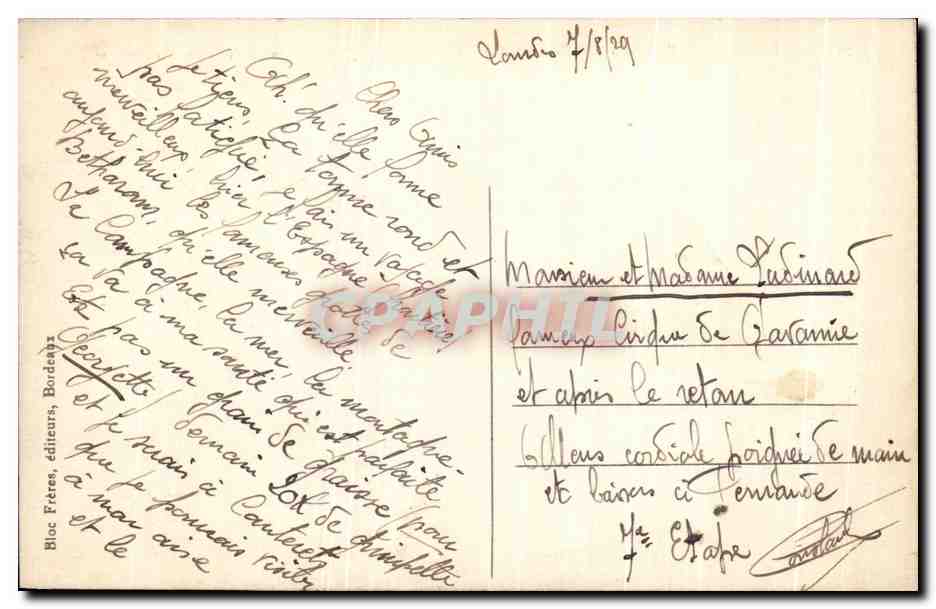 Lourdes 7/8/29
Chers Amis
Ah! qu'elle forme
je tiens, ça tourne rond et
pas fatigué, je fais un voyage
merveilleux, hier l'Espagne,
aujourd'hui les fameuses grottes de
Betharam, qu'elle merveille
La Campagne, la mer, la montagne
ça va à ma santé qui est parfaite
Et pas un grain de graisse pour
Georgette demain de grimpette
et je serais à Cauterets
que je pourrais visiter
à mon aise
et le
Monsieur et Madame Ladinard
fameux Cirque de Gavarnie
et après le retour
cordiale poignée de main
et baisers à
7e Etape
Constant
Bloc Frères, éditeurs, Bordeaux
CPAPHIL